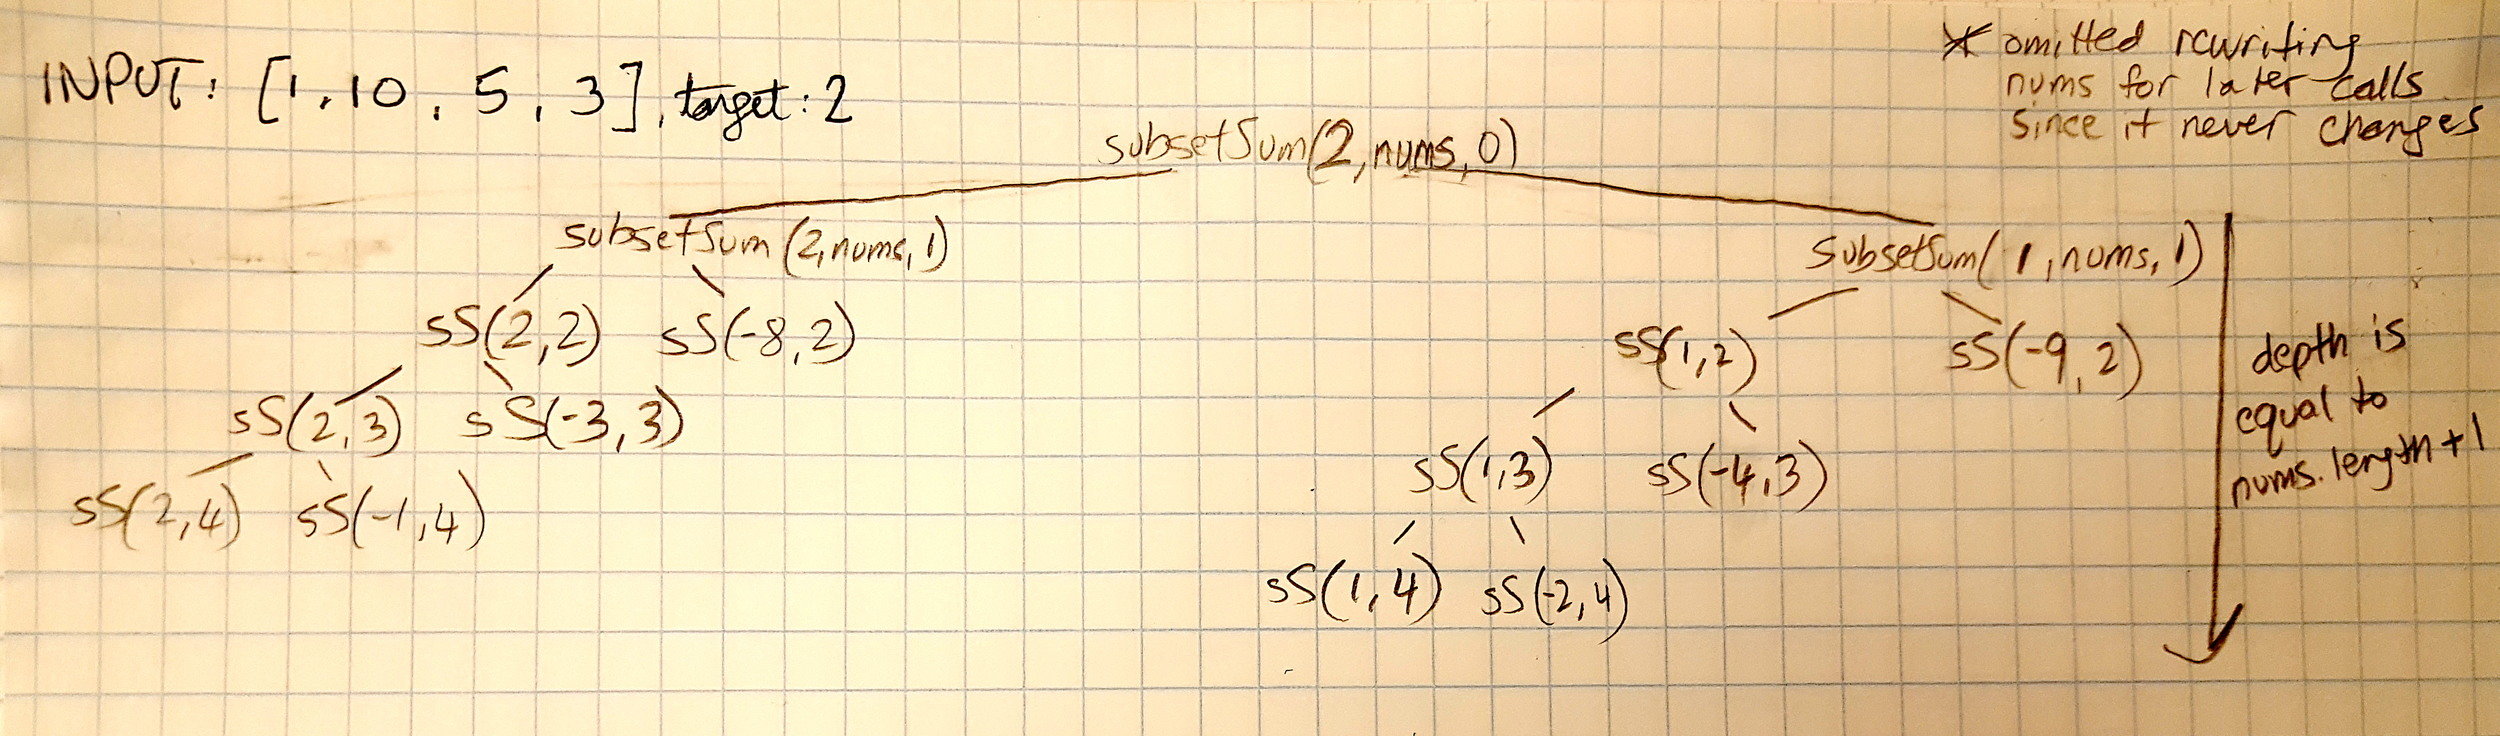 INPUT: [1, 10, 5, 3], target: 2
* omitted rewriting
nums for later calls
since it never changes
subsetSum(2, nums, 0)
subsetSum(2, nums, 1)
subsetSum(1, nums, 1)
sS(2, 2) sS(-8, 2)
sS(1, 2) sS(-9, 2)
sS(2, 3) sS(-3, 3)
sS(1, 3) sS(-4, 3)
sS(2, 4) sS(-1, 4)
sS(1, 4) sS(-2, 4)
depth is
equal to
nums.length + 1